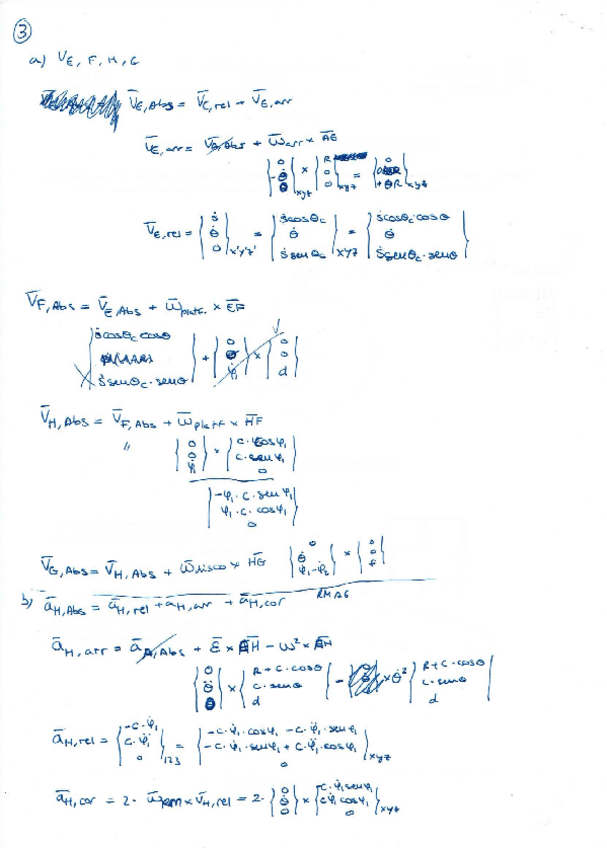 3
a) V_E, F, H, G
V̄_E,Abs = V̄_E,rel + V̄_E,arr
V̄_E,arr = V̄_A,Abs + ω̄arr × ĀE
{0 -θ̇ 0}xyz × {R 0 0}xyz = {0 0 +θ̇R}xyz
V̄_E,rel = {ṡ θ̇ 0}x'y'z' = {ṡcosθc θ̇ ṡsenθc}xyz = {ṡcosθc·cosθ θ̇ ṡsenθc·senθ}
V̄_F,Abs = V̄_E,Abs + ω̄platf. × ĒF
{ṡcosθc cosθ ṡsenθc·senθ} + {0 φ̇1} × {0 0 d}
V̄_H,Abs = V̄_F,Abs + ω̄platf × H̄F
" {0 0 φ̇1} × {c·cosφ1 c·senφ1 0}
{-φ̇1·c·senφ1 φ̇1·c·cosφ1 0}
V̄_G,Abs = V̄_H,Abs + ω̄disco × H̄G {0 θ̇ φ̇1-φ̇2} × {0 0 f}
b) ā_H,Abs = ā_H,rel + ā_H,arr + ā_H,cor
ā_H,arr = ā_A,Abs + ε̄ × ĀH - ω² × ĀH
{0 θ̈ 0} × {R+c·cosθ c·senθ d} - θ̇² {R+c·cosθ c·senθ d}
ā_H,rel = {-c·φ̇1 c·φ̈1 0}123 = {-c·φ̇1·cosφ1 -c·φ̈1·senφ1 -c·φ̇1·senφ1 + c·φ̈1·cosφ1 0}xyz
ā_H,cor = 2· × v̄_H,rel = 2· {0 θ̇ 0} × {-c·φ̇1senφ1 cφ̇1cosφ1 0}xyz